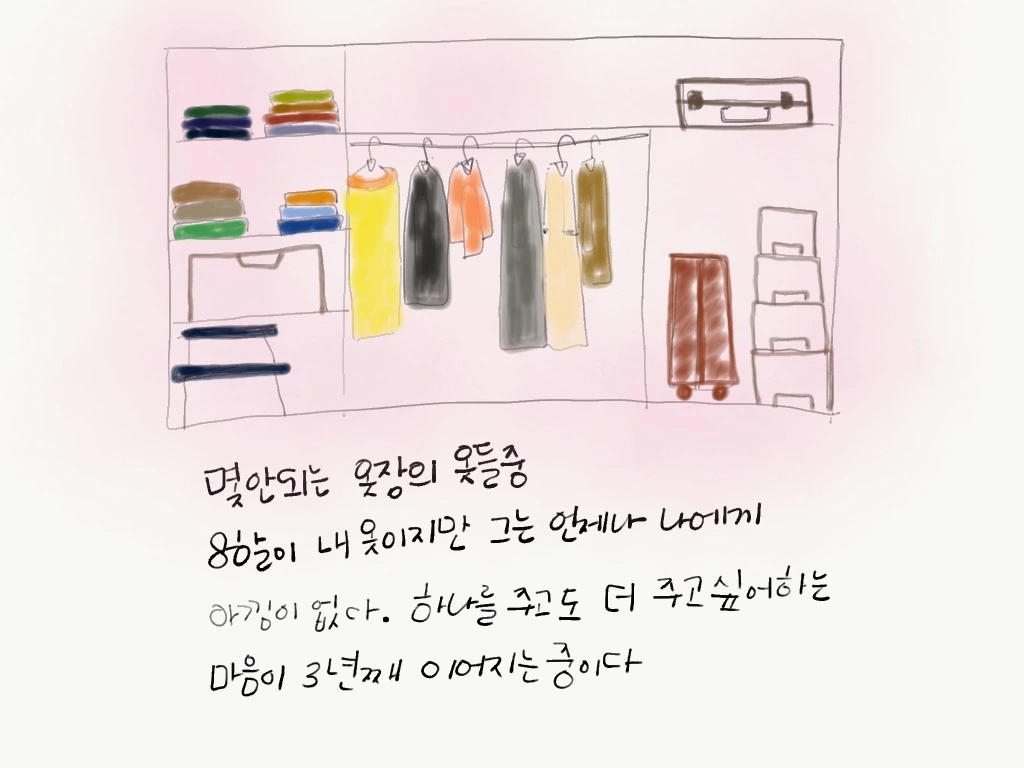 몇안되는 옷장의 옷들중
8할이 내 옷이지만 그는 언제나 나에게
아낌이 없다. 하나를 주고도 더 주고싶어하는
마음이 3년째 이어지는 중이다